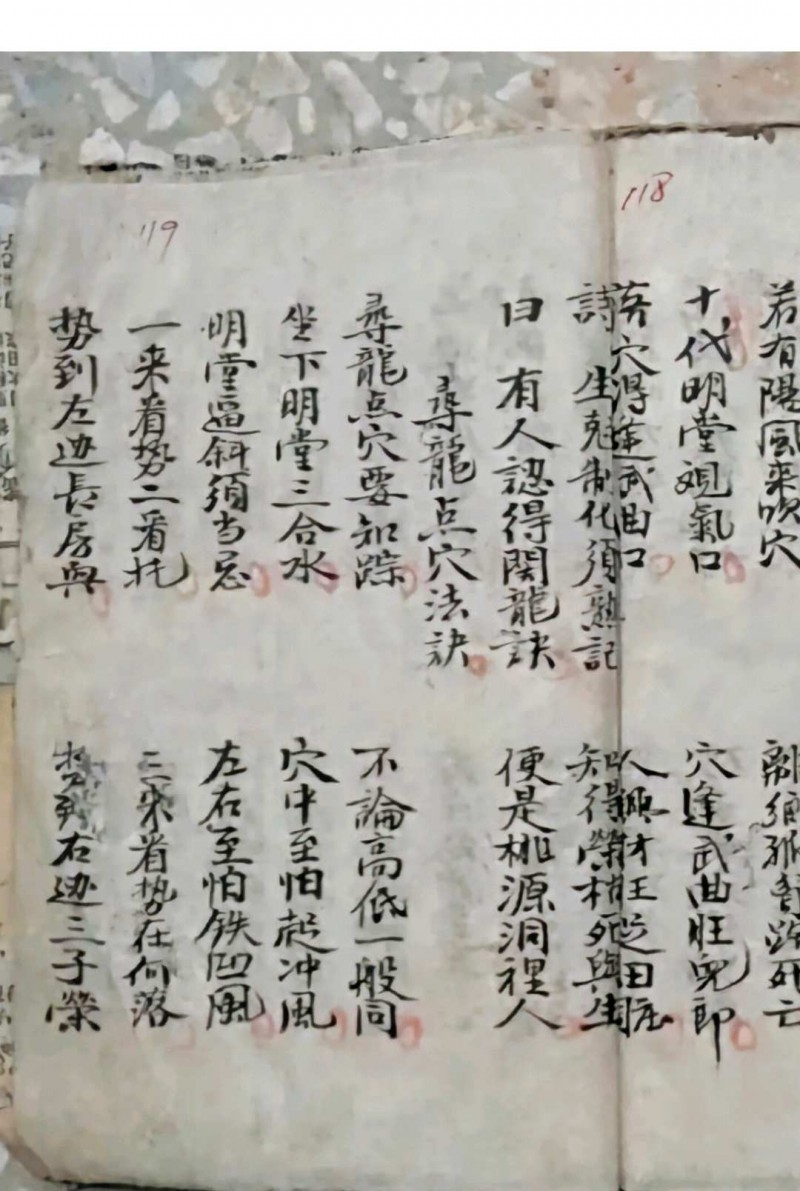 118
若有陽風来吹穴
離鄉死亡
十代明堂观氣口
穴逢武曲旺兒郎
穴得逢武曲口
人興財旺足田庄
詩 生尅制化須熟記
知得榮枯死與生
曰 有人認得関龍訣
便是桃源洞裡人
119
尋龍点穴法訣
尋龍点穴要知踪
不論高低一般同
坐下明堂三合水
穴中至怕起冲風
明堂逼斜須当忌
左右至怕铁凹風
一来看势二看托
三来看势在何落
势到左边長房興
势到右边三子榮